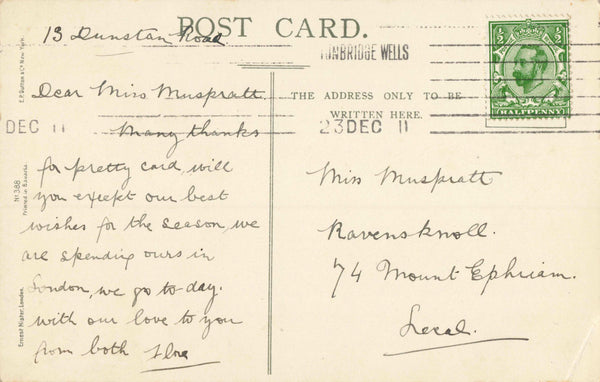 POST CARD.
13 Dunstan Road
TUNBRIDGE WELLS
DEC 11
23 DEC 11
½ ½
HALFPENNY
THE ADDRESS ONLY TO BE
WRITTEN HERE.
E.P. Dutton & Co New York.
No 388
Printed in Bavaria.
Ernest Nister, London.
Dear Miss Muspratt
Many thanks
for pretty card, will
you except our best
wishes for the season, we
are spending ours in
London, we go to-day.
with our love to you
from both Flora
Miss Muspratt
Ravensknoll.
74 Mount Ephriam.
Local.